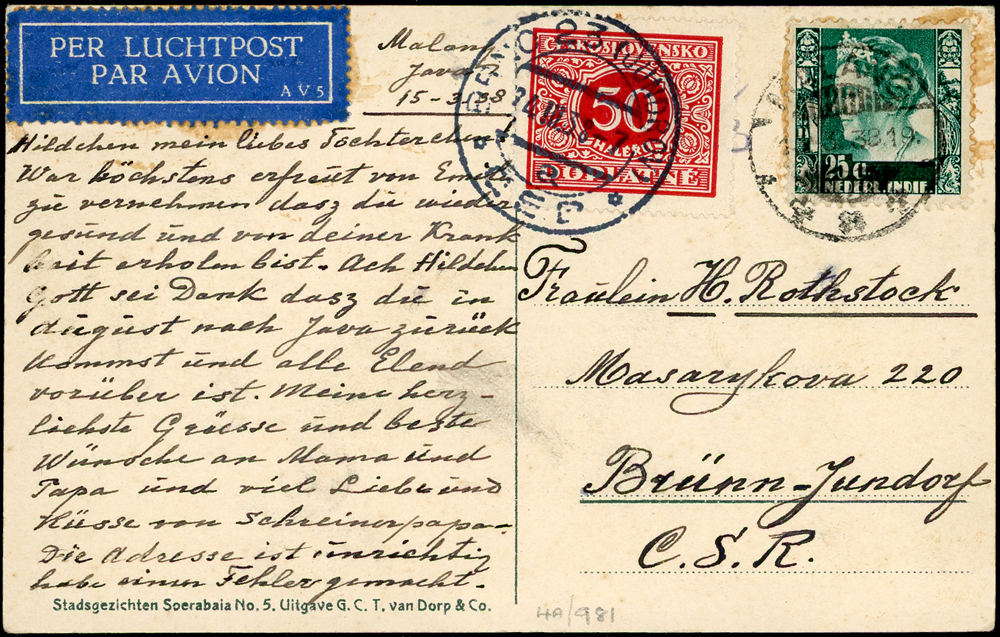 PER LUCHTPOST
PAR AVION
AV5
Malang
Java
15-3-38
Hildchen mein liebes Töchterchen
War höchstens erfreut von Emil
zu vernehmen dasz du wieder
gesund und von deiner Krank
heit erholen bist. Ach Hildchen
Gott sei Dank dasz du in
august nach Java zurück
kommst und alle Elend
vorüber ist. Meine herz-
lichste Grüsse und beste
Wünsche an Mama und
Papa und viel Liebe und
Küsse von Schreinerpapa-
Die Adresse ist unrichtig
habe einen Fehler gemacht.
Stadsgezichten Soerabaia No. 5. Uitgave G. C. T. van Dorp & Co.
ČESKOSLOVENSKO
50
HALÉŘŮ
DOPLATNÉ
BRNO 23
25 Cent
NEDERL. INDIE
38.19
Fräulein H. Rothstock
Masarykova 220
Brünn-Jundorf
C.S.R.
4A/981